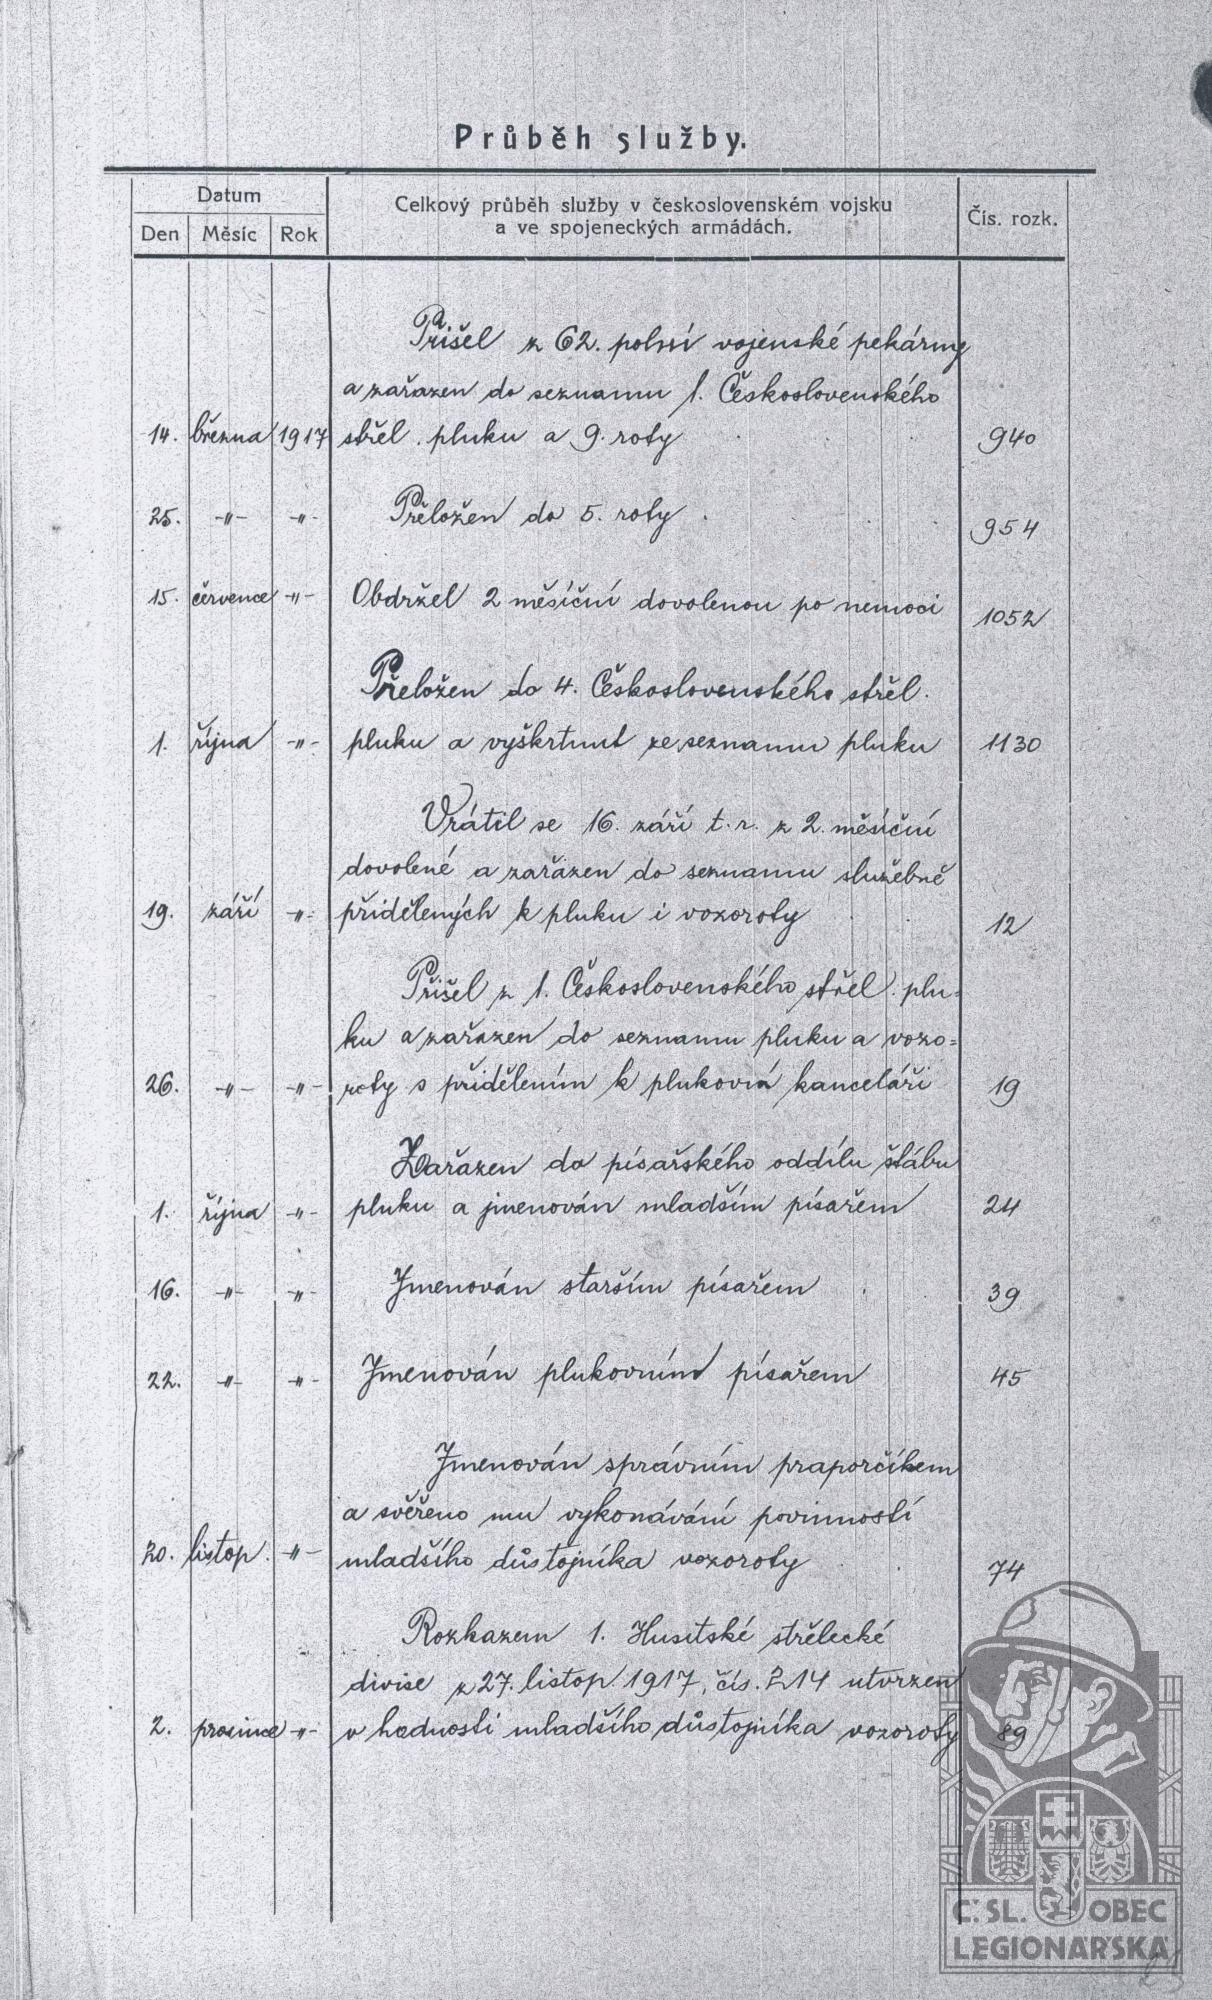 Průběh služby.
Datum
Den Měsíc Rok
Celkový průběh služby v československém vojsku
a ve spojeneckých armádách.
Čís. rozk.
Přišel z 62. polní vojenské pekárny
a zařazen do seznamu 1. Československého
14. března 1917 střel. pluku a 9. roty 940
25. -"- -"- Přeložen do 5. roty 954
15. července -"- Obdržel 2 měsíční dovolenou po nemoci 1052
Přeložen do 4. Československého střel.
1. října -"- pluku a vyškrtnut ze seznamu pluku 1130
Vrátil se 16. září t. r. z 2. měsíční
dovolené a zařazen do seznamu služebně
19. září -"- přidělených k pluku i vozoroty 12
Přišel z 1. Československého střel. plu-
ku a zařazen do seznamu pluku a vozo=
26. -"- -"- roty s přidělením k plukovní kanceláři 19
Zařazen do písařského oddílu štábu
1. října -"- pluku a jmenován mladším písařem 24
16. -"- -"- Jmenován starším písařem 39
22. -"- -"- Jmenován plukovním písařem 45
Jmenován správním praporčíkem
a svěřeno mu vykonávání povinností
20. listop. -"- mladšího důstojníka vozoroty 74
Rozkazem 1. Husitské střelecké
divise z 27. listop. 1917, čís. 214 utvrzen
2. prosince -"- v hodnosti mladšího důstojníka vozoroty 89
Č. SL. OBEC
LEGIONÁŘSKÁ